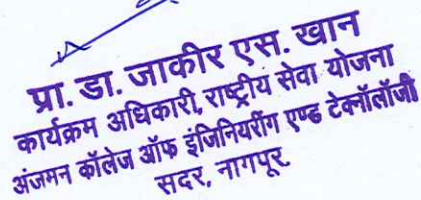 प्रा. डा. जाकीर एस. खान
कार्यक्रम अधिकारी, राष्ट्रीय सेवा योजना
अंजमन कॉलेज ऑफ इंजिनियरींग एण्ड टेक्नॉलॉजी
सदर, नागपूर.